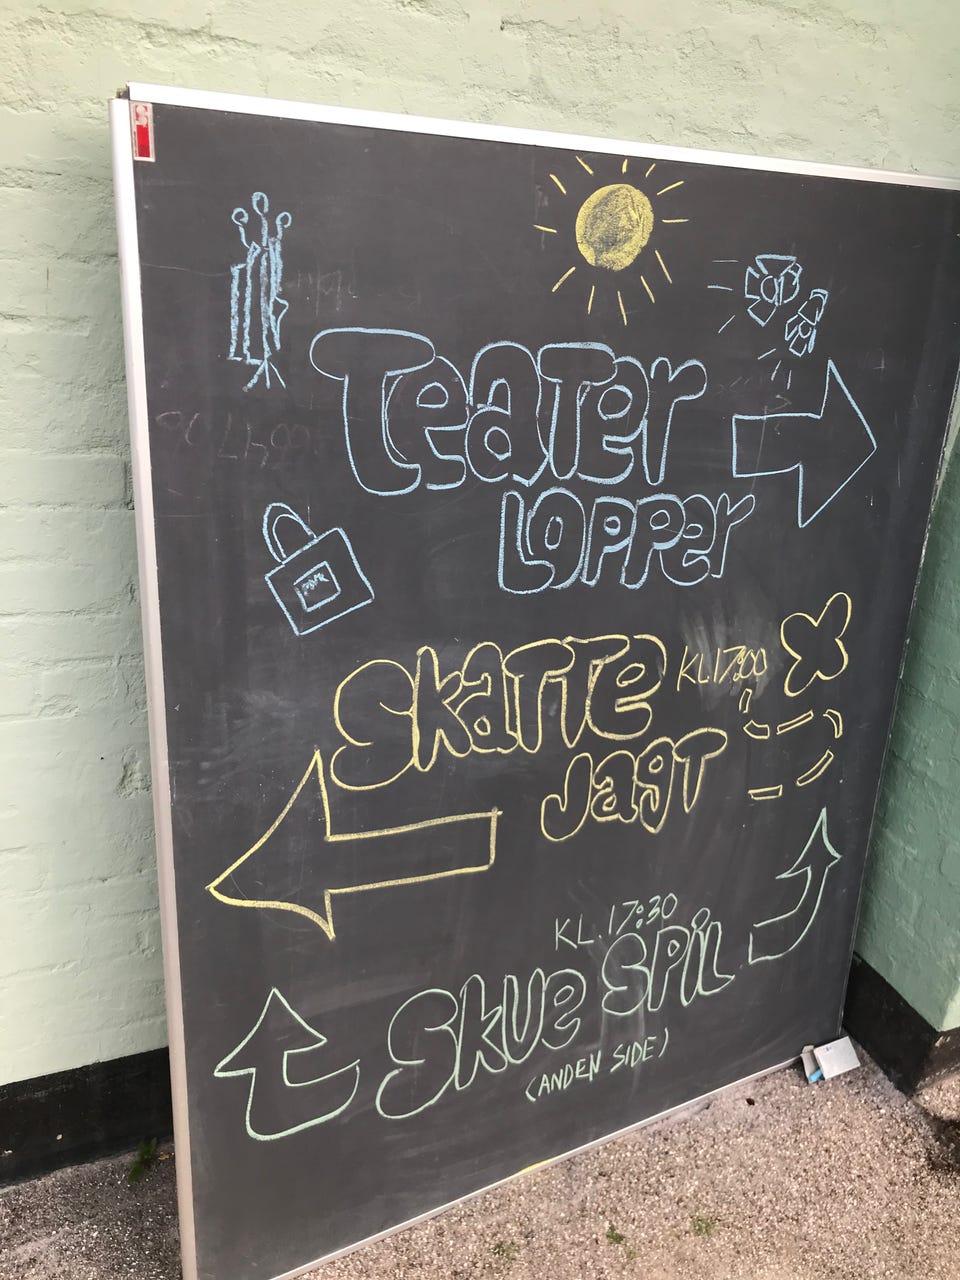 Teater
Lopper
Skatte KL 17:00
Jagt
KL. 17:30
Skue Spil
(ANDEN SIDE)